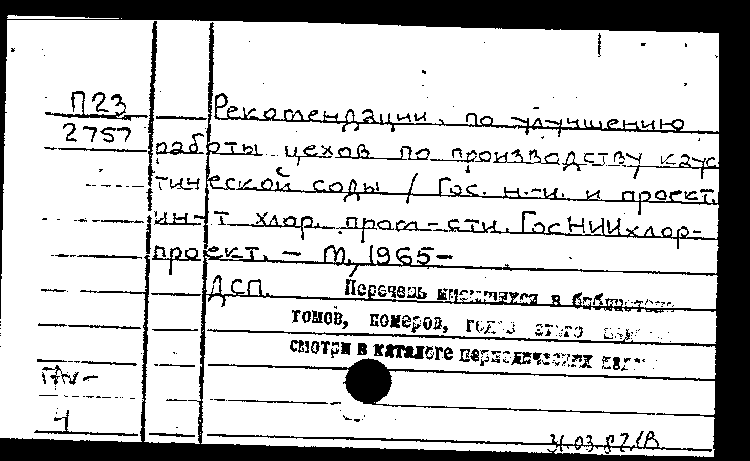 П23
2757
Рекомендации по улучшению
работы цехов по производству каус
тической соды / Гос. н.-и. и проект.
ин-т хлор. пром-сти. ГосНИИхлор-
проект. — М, 1965-
ДСП.
Перечень имеющихся в библиотеке
томов, номеров, годов этого
смотри в каталоге периодических
4
31.03.82